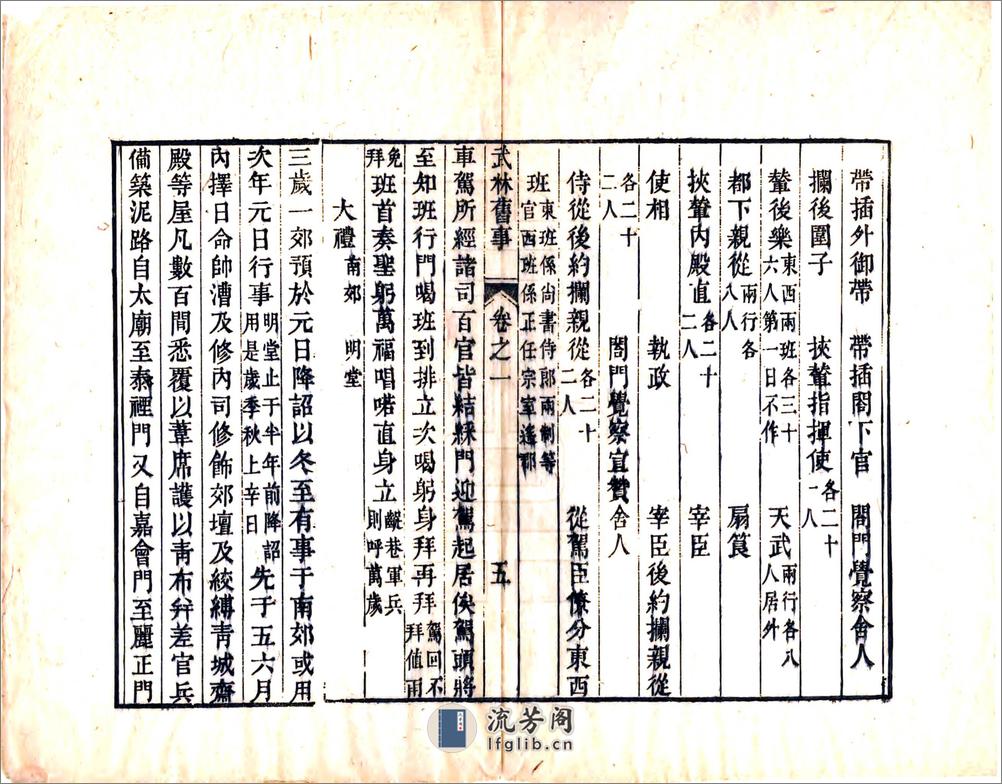 帶插外御帶　帶插閤下官　閤門覺察舍人
攔後圍子　挾輦指揮使各二十一八
輦後樂東西兩班各三十六人第一日不作　天武兩行各八人居外
都下親從兩行各八人　扇筤
挾輦內殿直各二十二人　宰臣
使相　執政　宰臣後約攔親從
各二十二人　閤門覺察宣贊舍人
侍從後約攔親從各二十二人　從駕臣僚分東西
班東班係尙書侍郎兩制等班官西班係正任宗室遙郡
武林舊事　卷之一　五
車駕所經諸司百官皆結綵門迎駕起居俟駕頭將
至知班行門喝班到排立次喝躬身拜再拜駕回不拜値雨
免拜班首奏聖躬萬福唱喏直身立齪巷軍兵則呼萬歲
大禮南郊　明堂
三歲一郊預於元日降詔以冬至有事于南郊或用
次年元日行事明堂止于半年前降詔用是歲季秋上辛日先于五六月
內擇日命帥漕及修內司修飾郊壇及絞縛靑城齋
殿等屋凡數百間悉覆以葦席護以靑布幷差官兵
備築泥路自太廟至泰禋門又自嘉會門至麗正門
流芳阁
lfglib.cn